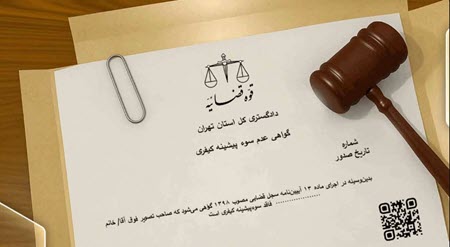 قوه قضائیه
دادگستری کل استان تهران
گواهی عدم سوء پیشینه کیفری
شماره
تاریخ صدور
بدین‌وسیله در اجرای ماده ۱۳ آیین‌نامه سجل قضایی مصوب ۱۳۹۸ گواهی می‌شود که صاحب تصویر فوق آقا/ خانم
.................... فاقد سوءپیشینه کیفری است